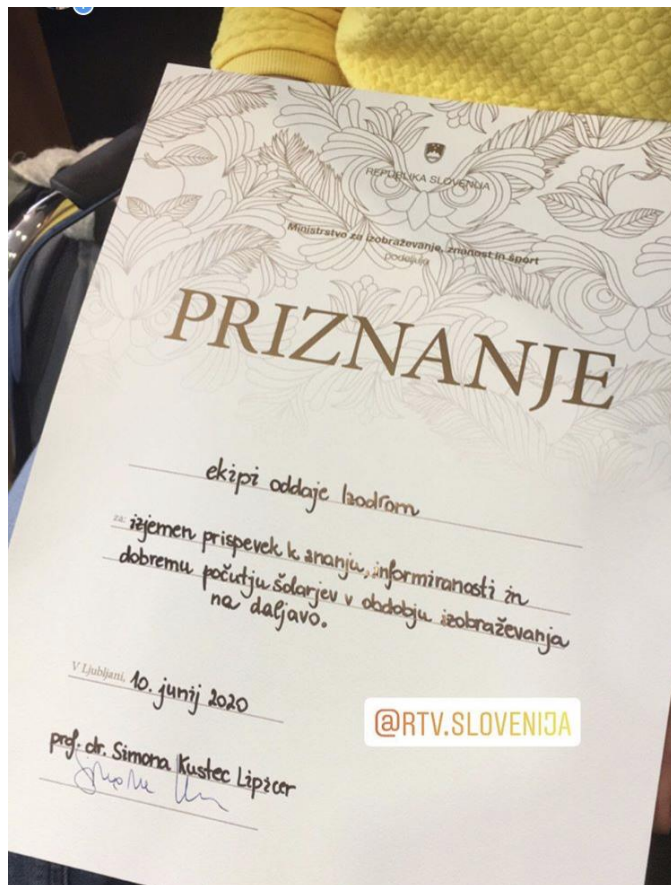 REPUBLIKA SLOVENIJA
Ministrstvo za izobraževanje, znanost in šport
podeljuje
PRIZNANJE
ekipi oddaje Izodrom
za: izjemen prispevek k znanju, informiranosti in
dobremu počutju šolarjev v obdobju izobraževanja
na daljavo.
V Ljubljani, 10. junij 2020
@RTV.SLOVENIJA
prof. dr. Simona Kustec Lipicer